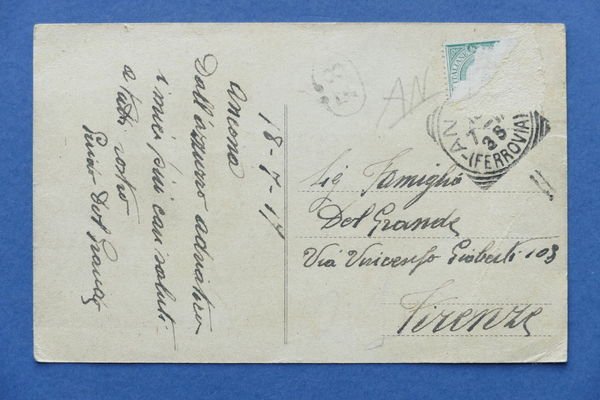 Ancona
18-7-17
Dall'azzurro adriatico
i miei più cari saluti.
a tutti vostro
Guido Del Grande
AN
ITALIANE
AN
(FERROVIA)
Sig Famiglia
Del Grande
Via Vincenzo Gioberti 103
Firenze